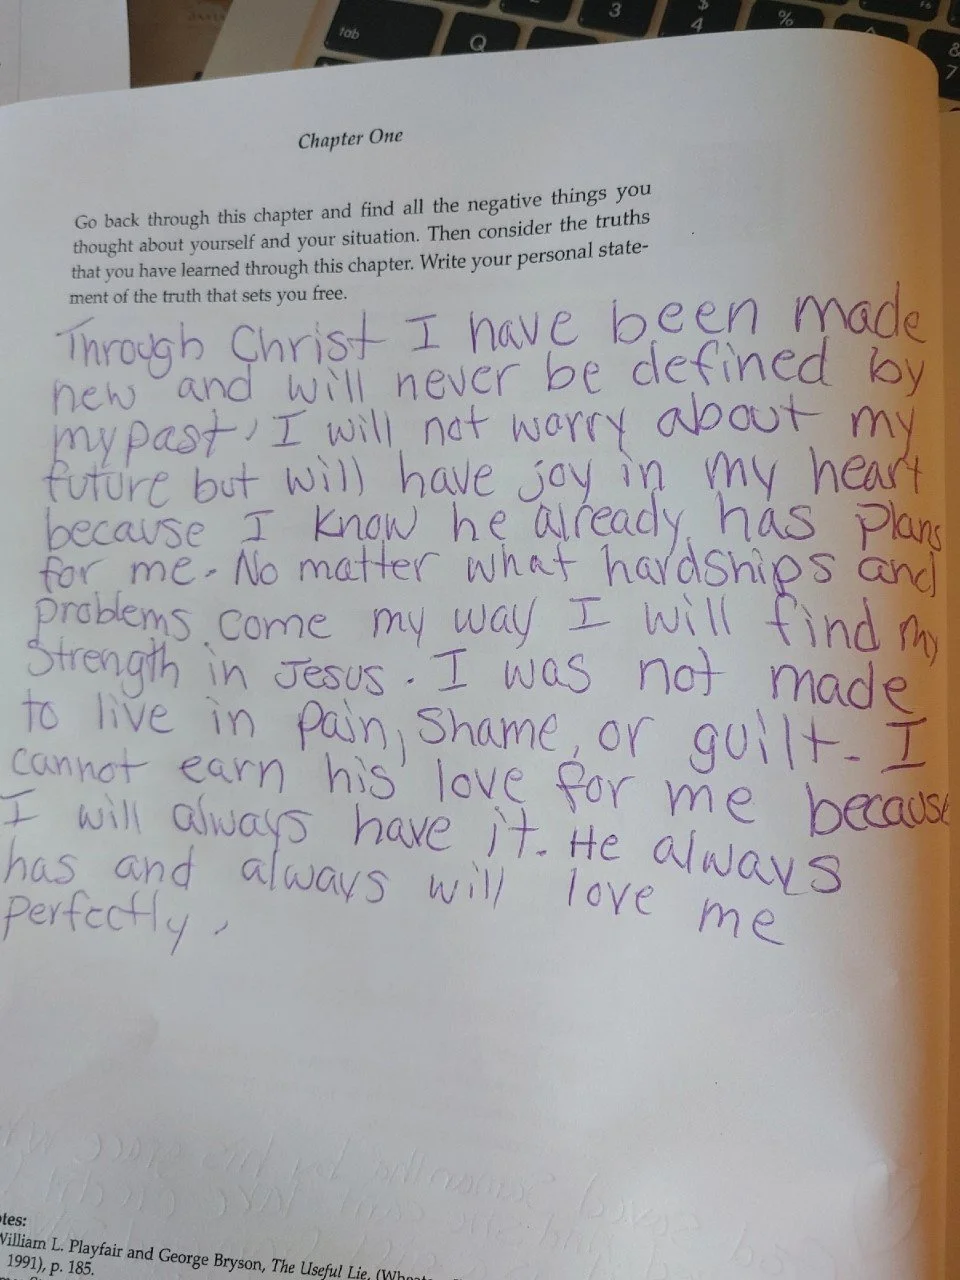 tab
Q
3
$
4
%
&
7
Chapter One
Go back through this chapter and find all the negative things you
thought about yourself and your situation. Then consider the truths
that you have learned through this chapter. Write your personal state-
ment of the truth that sets you free.
Through Christ I have been made
new and will never be defined by
my past, I will not worry about my
future but will have joy in my heart
because I know he already has plans
for me. No matter what hardships and
problems come my way I will find my
strength in Jesus. I was not made
to live in pain, shame, or guilt. I
cannot earn his love for me because
I will always have it. He always
has and always will love me
perfectly.
William L. Playfair and George Bryson, The Useful Lie,
1991), p. 185.